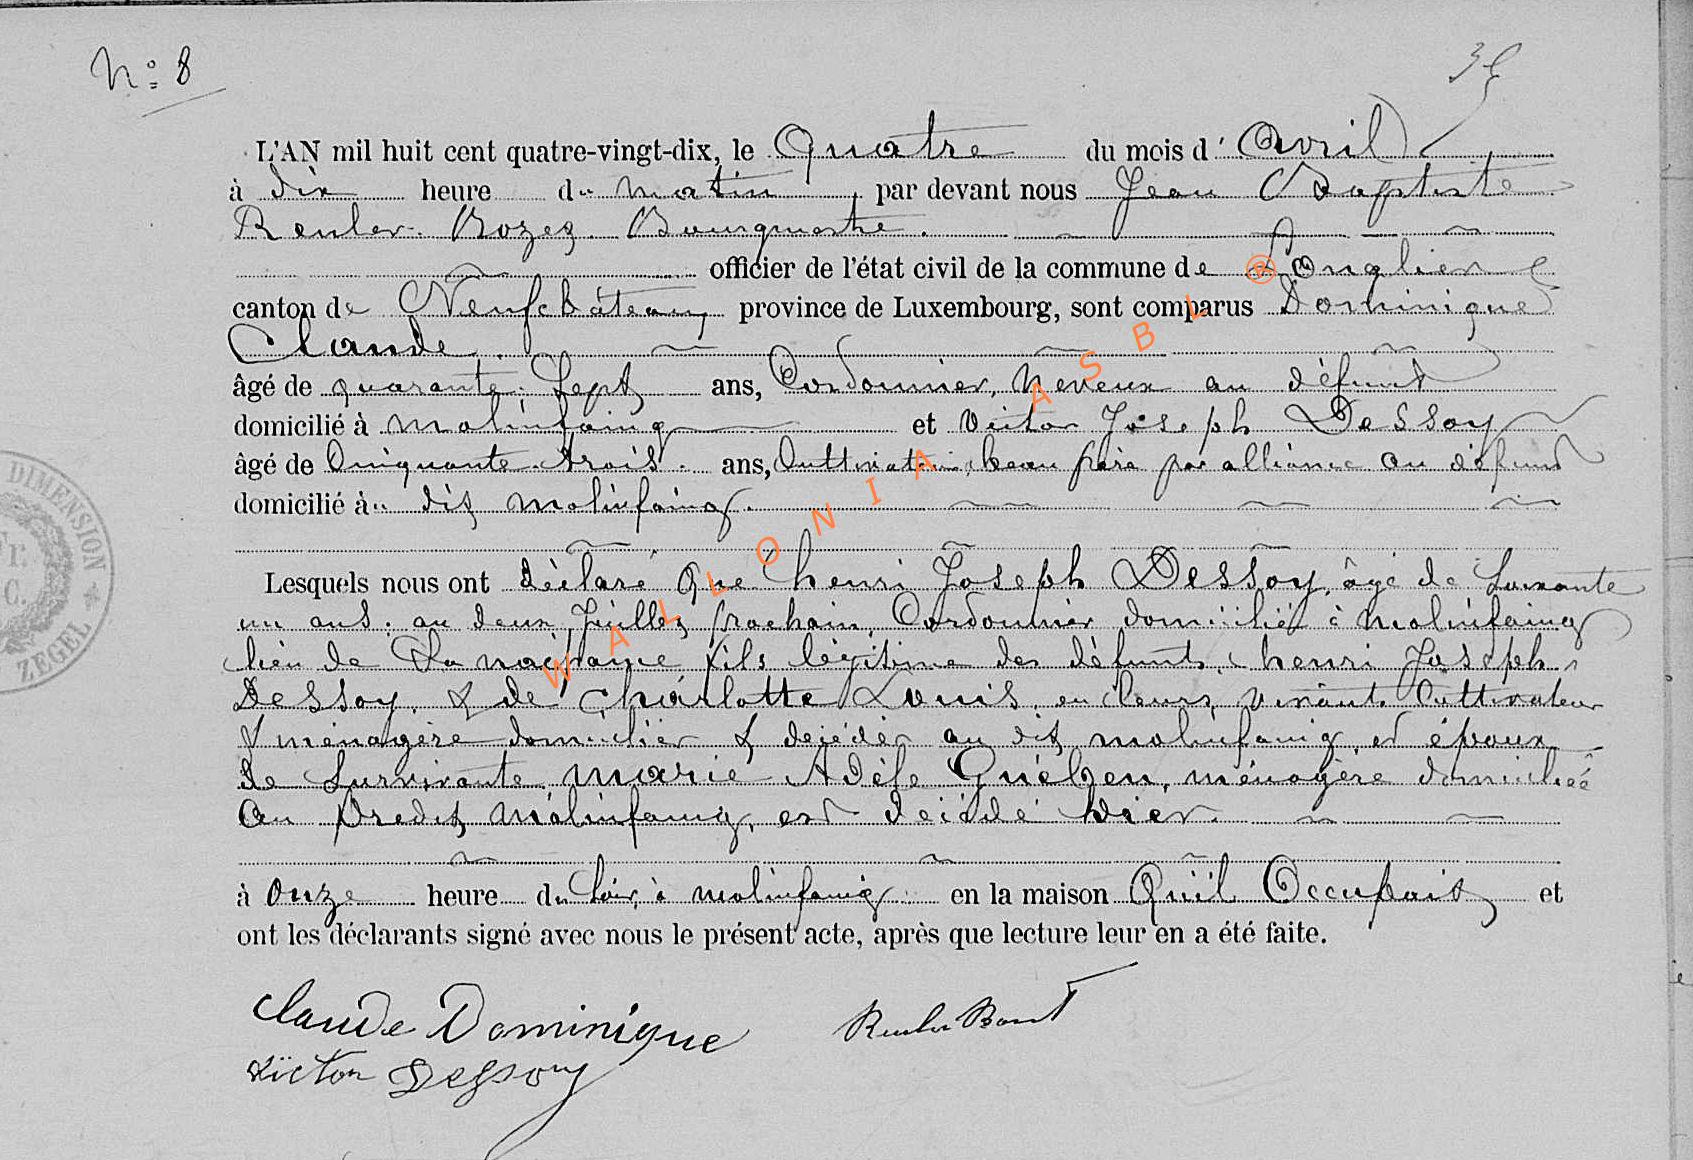 N° 8
35
L'AN mil huit cent quatre-vingt-dix, le Quatre du mois d' Avril
à dix heure du matin, par devant nous Jean Baptiste
Renler. Rozez. Bourgmestre.
officier de l'état civil de la commune de Longlier
canton de Neufchâteau, province de Luxembourg, sont comparus Dominique
Claude.
âgé de quarante. Sept ans, Cordonnier, Neveux au défunt
domicilié à molinfaing et Victor Joseph Dessoy
âgé de Cinquante. trois. ans, Cultivateur, beau frère par alliance au défunt
domicilié à dit molinfaing.
Lesquels nous ont déclaré que henri Joseph Dessoy, âgé de Soixante
un ans. au deux Juillet prochain, Cordonnier domicilié à Molinfaing
lieu de Sa naissance fils légitime des défunts henri Joseph
Dessoy. & de Charlotte Louis, en leurs vivant Cultivateur
& ménagère domicilier & décéder au dit molinfaing, et époux
de Survivante marie Adèle Guében, ménagère domiciliée
au predit Molinfaing, est décédé hier.
à Onze heure du Soir, à molinfaing en la maison Qu'il Occupait, et
ont les déclarants signé avec nous le présent acte, après que lecture leur en a été faite.
Claude Dominique
Victor Dessoy
DIMENSION
Fr.
C.
ZEGEL
WALLONIA ASBL ®